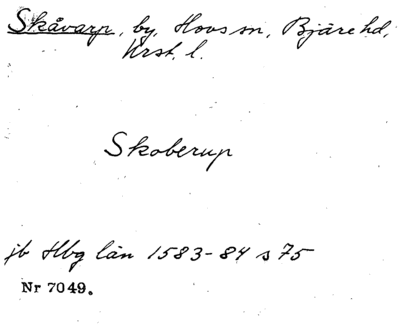 Skåvarp, by, Hovs sn, Bjäre hd,
Krst. l.
Skoberup
jb Hbg län 1583-84 s 75
Nr 7049.